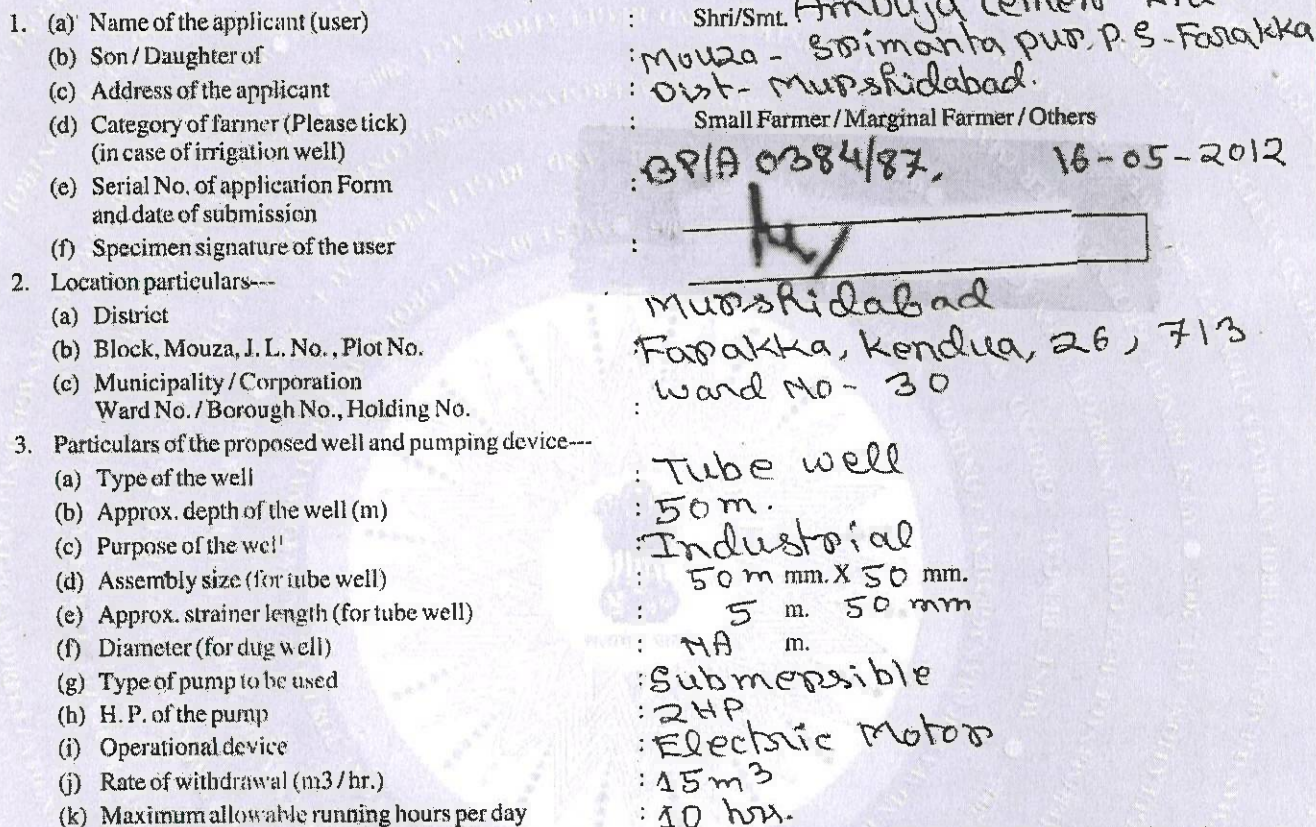 1. (a) Name of the applicant (user) : Shri/Smt. Ambuja Cement Ltd
(b) Son / Daughter of : Mouza - Srimanta pur, P.S - Farakka
(c) Address of the applicant : Dist - Murshidabad.
(d) Category of farmer (Please tick) : Small Farmer / Marginal Farmer / Others
(in case of irrigation well)
(e) Serial No. of application Form : GP/A 0384/87, 16-05-2012
and date of submission
(f) Specimen signature of the user :
2. Location particulars---
(a) District : Murshidabad
(b) Block, Mouza, J. L. No., Plot No. : Farakka, Kendua, 26, 713
(c) Municipality / Corporation Ward No - 30
Ward No. / Borough No., Holding No. :
3. Particulars of the proposed well and pumping device---
(a) Type of the well : Tube well
(b) Approx. depth of the well (m) : 50m.
(c) Purpose of the well : Industrial
(d) Assembly size (for tube well) : 50 m mm. X 50 mm.
(e) Approx. strainer length (for tube well) : 5 m. 50 mm
(f) Diameter (for dug well) : NA m.
(g) Type of pump to be used : Submersible
(h) H. P. of the pump : 2HP
(i) Operational device : Electric Motor
(j) Rate of withdrawal (m3 / hr.) : 15 m3
(k) Maximum allowable running hours per day : 10 hrs.